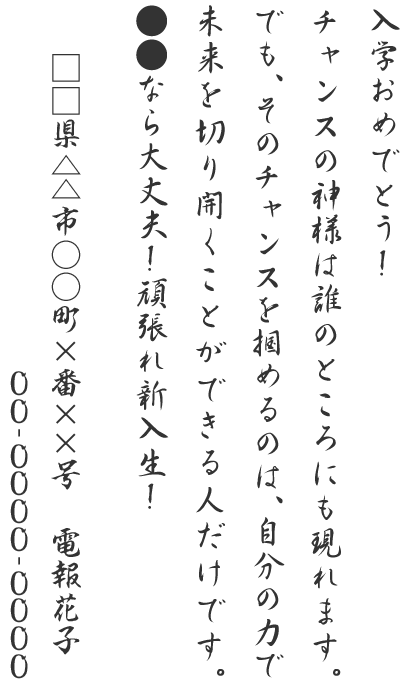 入学おめでとう！
チャンスの神様は誰のところにも現れます。
でも、そのチャンスを掴めるのは、自分の力で
未来を切り開くことができる人だけです。
●●なら大丈夫！頑張れ新入生！
□□県△△市○○町××番××号　電報花子
00-0000-0000